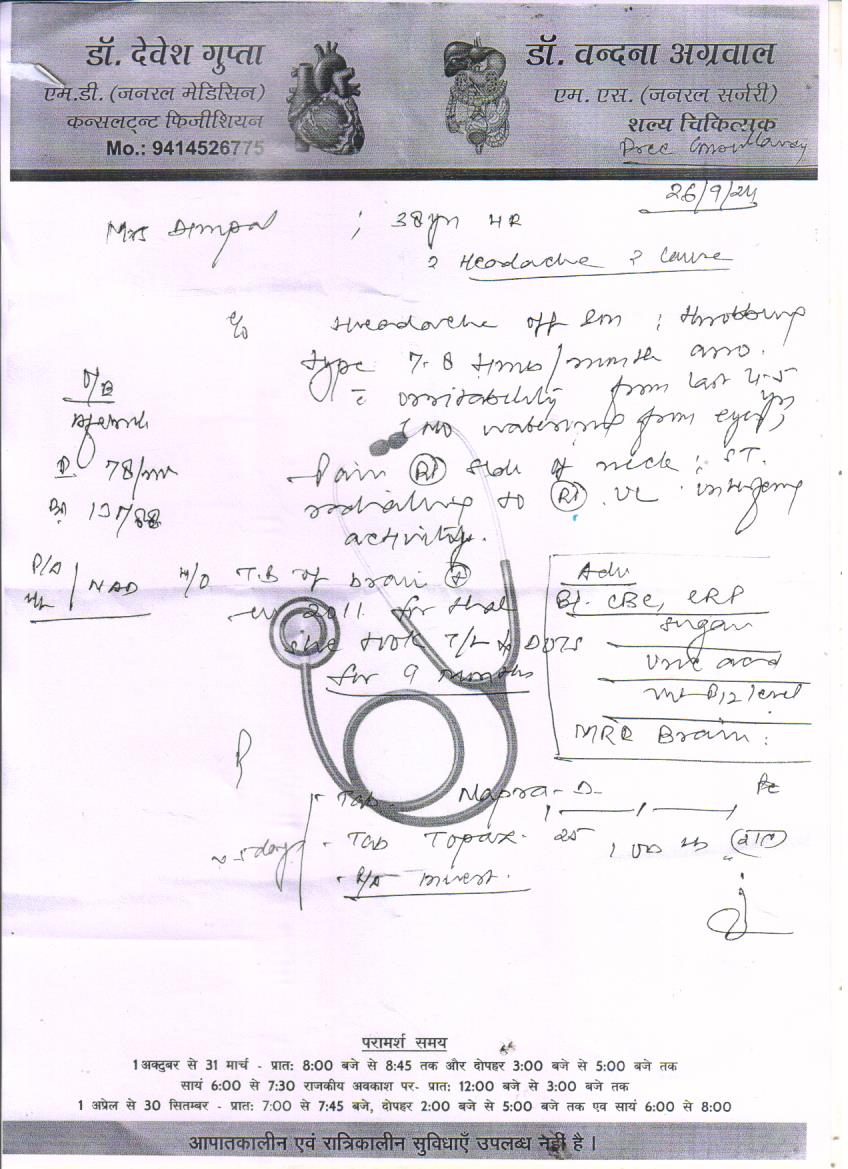 डॉ. देवेश गुप्ता
एम.डी. (जनरल मेडिसिन)
कन्सलट्न्ट फिजीशियन
Mo.: 9414526775
डॉ. वन्दना अग्रवाल
एम. एस. (जनरल सर्जरी)
शल्य चिकित्सक
26/9/24
Mrs ; 38yr
? Headache ? Cause
c/o Headache off & on ; throbbing
type 7-8 times/month
irritability from last 4-5 yrs
No watering from eyes
O/E
Afebrile
78/min
Pain Rt side of neck ;
radiating to Rt UL
activity.
P/A NAD
H/O T.B of brain
in 2011 for that
she took T/t DOTS
for 9 months
Adv
Bl. CBC, CRP
Sugar
Uric acid
Vit B12 level
MRI Brain
Tab Napra-D
x 5 days
Tab Topax 25
R/A invest.
परामर्श समय
1 अक्टुबर से 31 मार्च - प्रात: 8:00 बजे से 8:45 तक और दोपहर 3:00 बजे से 5:00 बजे तक
सायं 6:00 से 7:30 राजकीय अवकाश पर- प्रात: 12:00 बजे से 3:00 बजे तक
1 अप्रेल से 30 सितम्बर - प्रात: 7:00 से 7:45 बजे, दोपहर 2:00 बजे से 5:00 बजे तक एव सायं 6:00 से 8:00
आपातकालीन एवं रात्रिकालीन सुविधाएँ उपलब्ध नहीं है ।